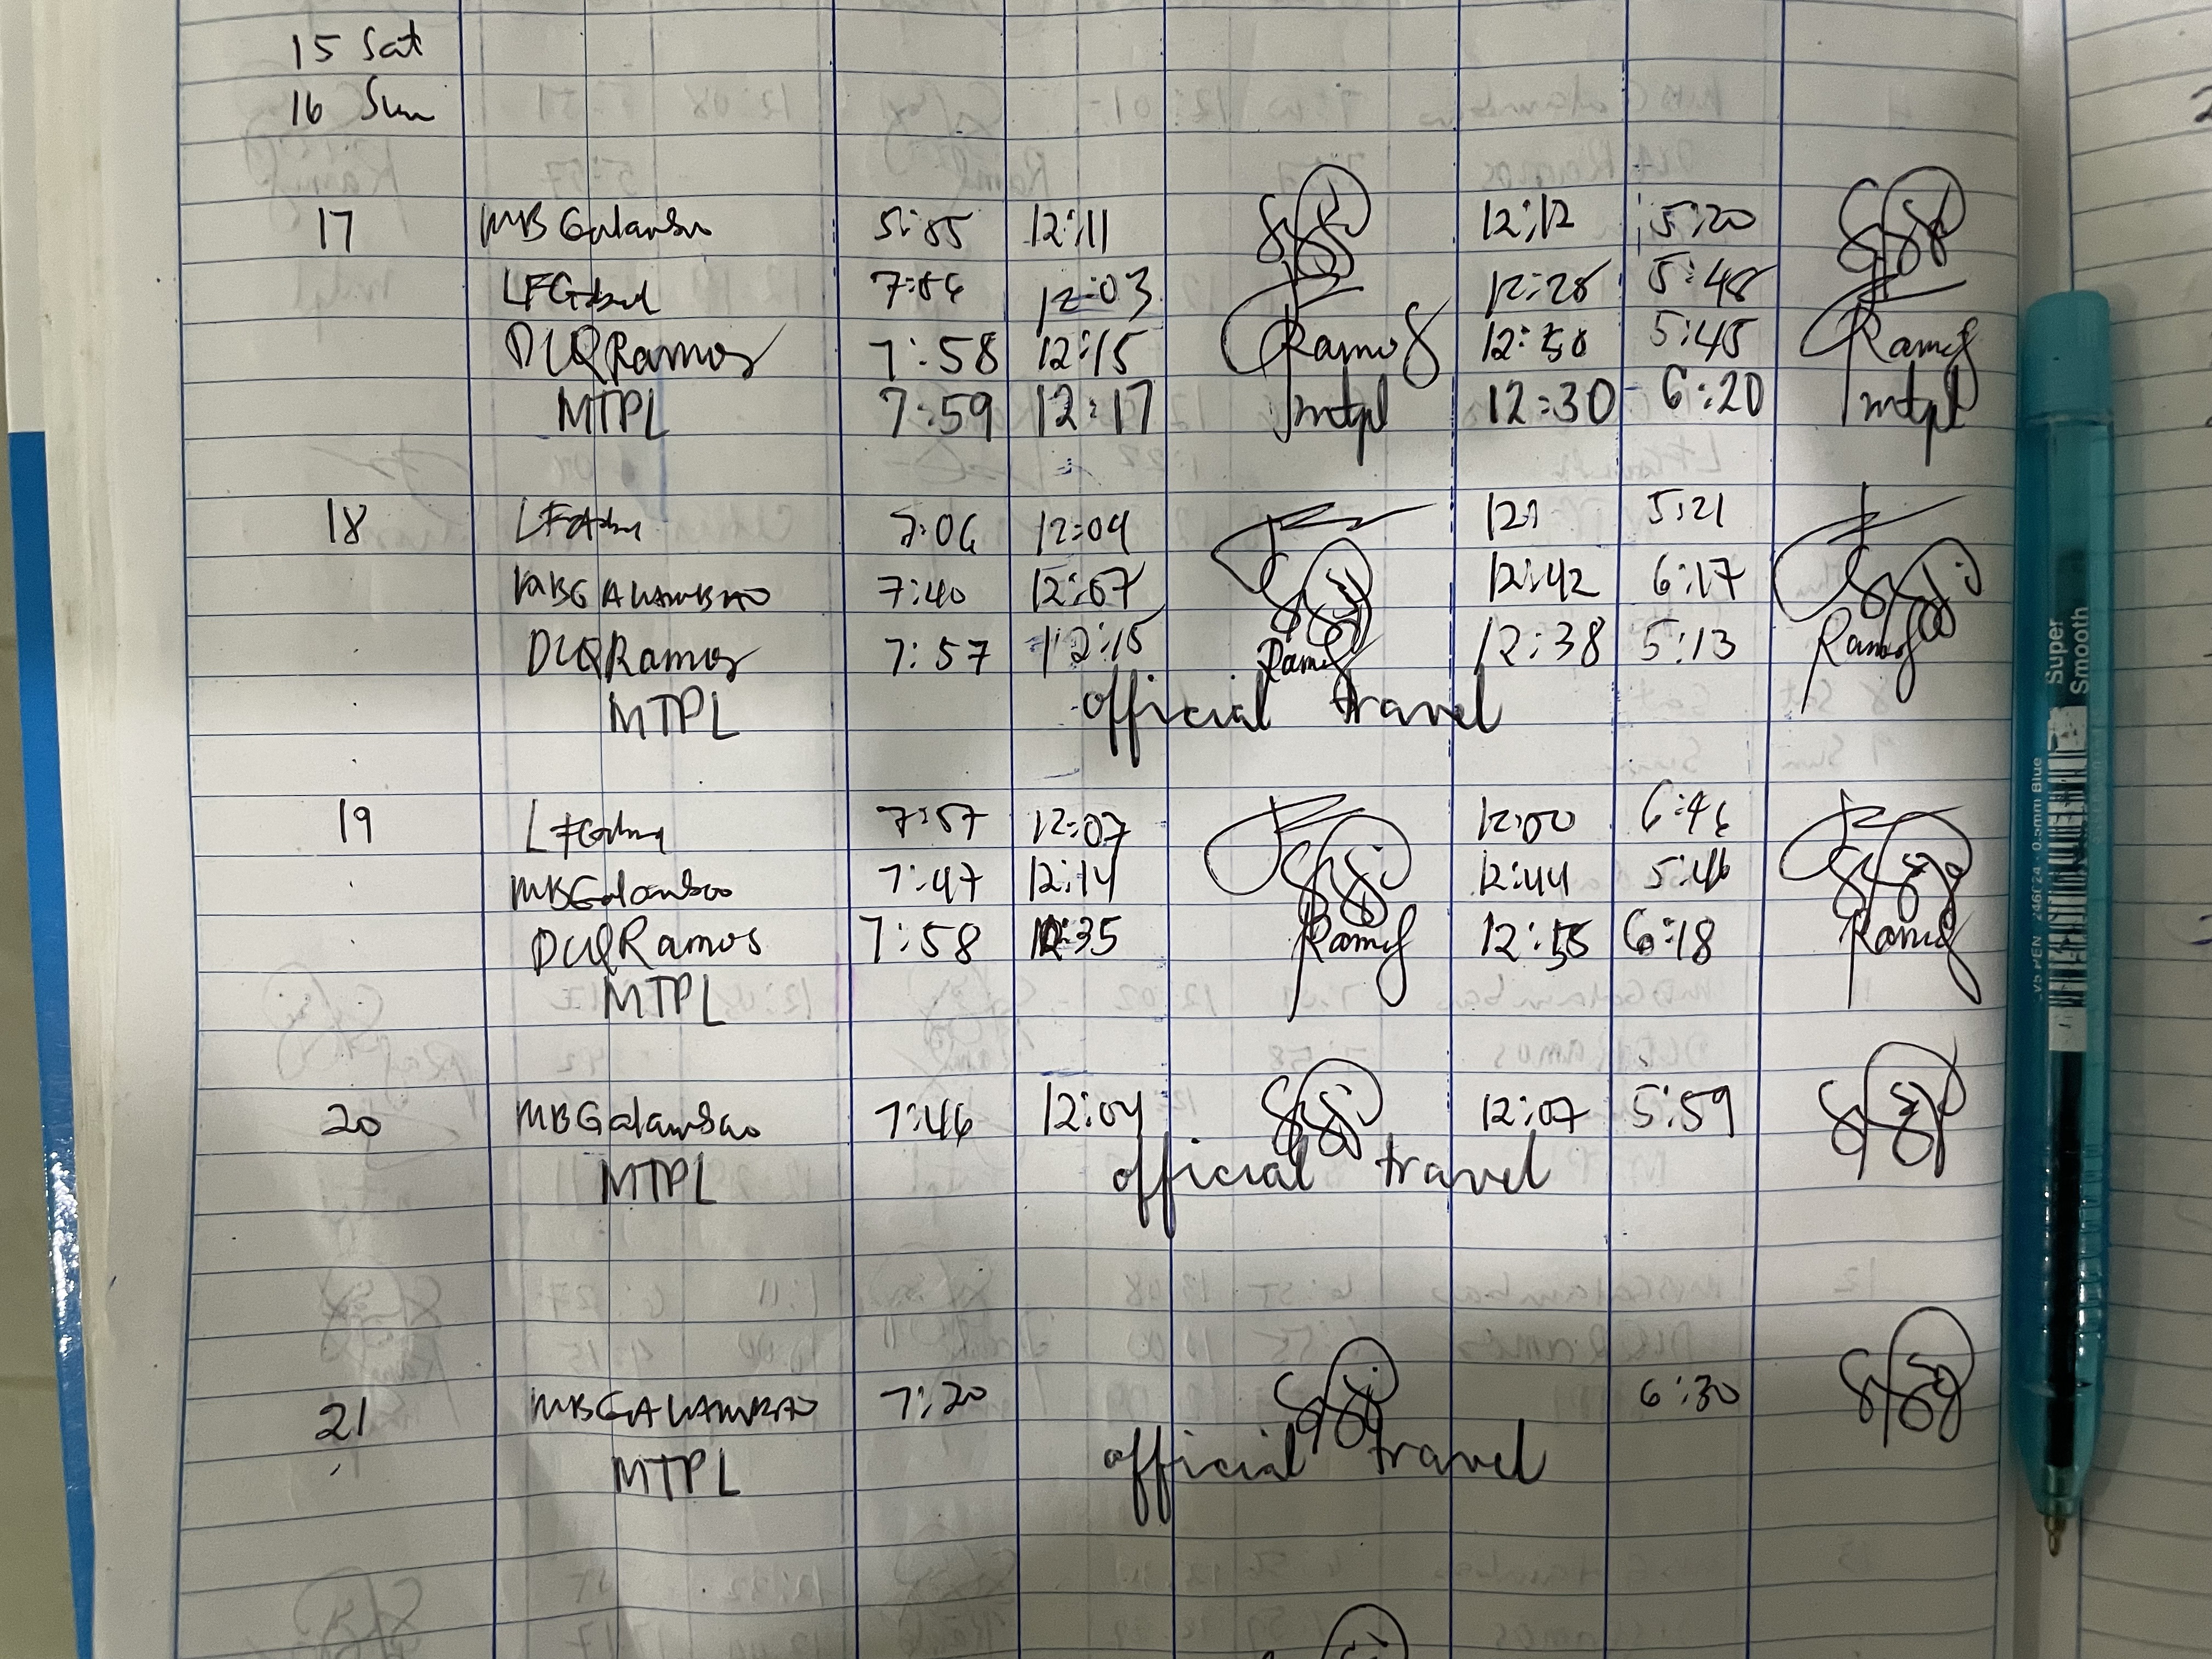 15 Sat
16 Sun
17 MBGalambao 5:55 12:11 12:12 5:20
7:56 12:03 12:28 5:48
DLQRamos 7:58 12:15 Ramos 12:50 5:45 Ramos
MTPL 7:59 12:17 mtpl 12:30 6:20 mtpl
18 7:06 12:04 5:21
MBGALAMBAO 7:40 12:07 12:42 6:17
DLQRamos 7:57 12:15 Ramos 12:38 5:13 Ramos
MTPL official travel
19 7:57 12:07 12:00 6:46
MBGalambao 7:47 12:14 12:44 5:46
DLQRamos 7:58 12:35 Ramos 12:55 6:18 Ramos
MTPL
20 MBGalambao 7:46 12:04 12:07 5:59
MTPL official travel
21 MBGALAMBAO 7:20 6:30
MTPL official travel
Super Smooth
0.5mm Blue